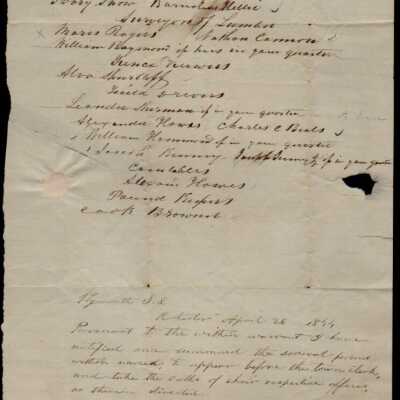 Ivory Snow Barnabas Hillie
Surveyors of Lumber
x Marss Rogers Nathan Cannon
William Haymond if lives in your quarter
Fence Viewers
Alva Shurtleff
Field Drivers
Leander Shurman if in your quarter
Alexander Howes Charles C Beals
William Hammond if in your quarter
Constables
Howes
Pound Keepers
Brownell
Plymouth S.S.
Rochester April 28 1844
Pursuant to the within warrant I have
notified and summoned the several persons
within named, to appear before the town clerk,
and take the oaths of their respective offices,
as therein directed